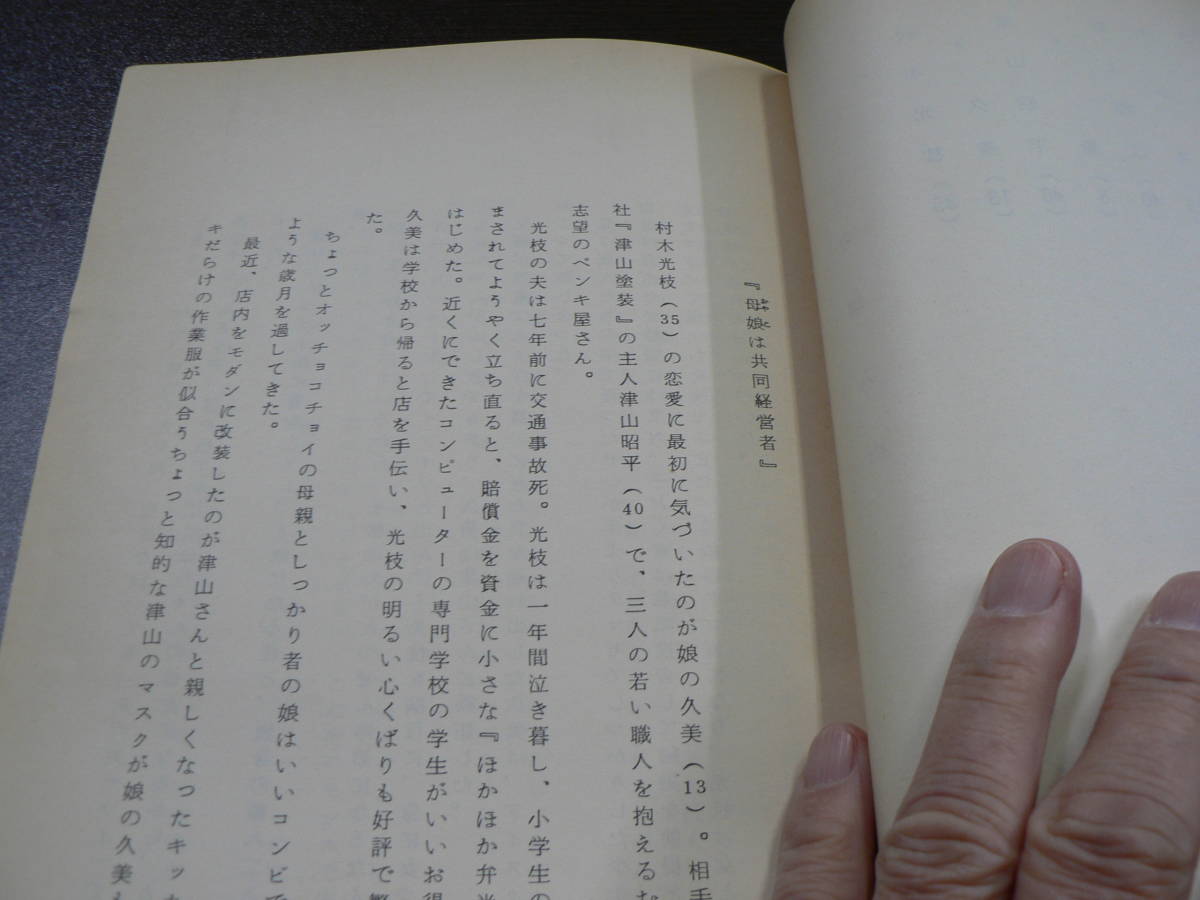 『母娘は共同経営者』
村木光枝(35)の恋愛に最初に気づいたのが娘の久美(13)。相手
社『津山塗装』の主人津山昭平(40)で、三人の若い職人を抱える
志望のペンキ屋さん。
光枝の夫は七年前に交通事故死。光枝は一年間泣き暮し、小学生の
まされてようやく立ち直ると、賠償金を資金に小さな『ほかほか弁
はじめた。近くにできたコンピューターの専門学校の学生がいいお得
久美は学校から帰ると店を手伝い、光枝の明るい心くばりも好評で
た。
ちょっとオッチョコチョイの母親としっかり者の娘はいいコンビで
ような歳月を過してきた。
最近、店内をモダンに改装したのが津山さんと親しくなったキッカ
キだらけの作業服が似合うちょっと知的な津山のマスクが娘の久美